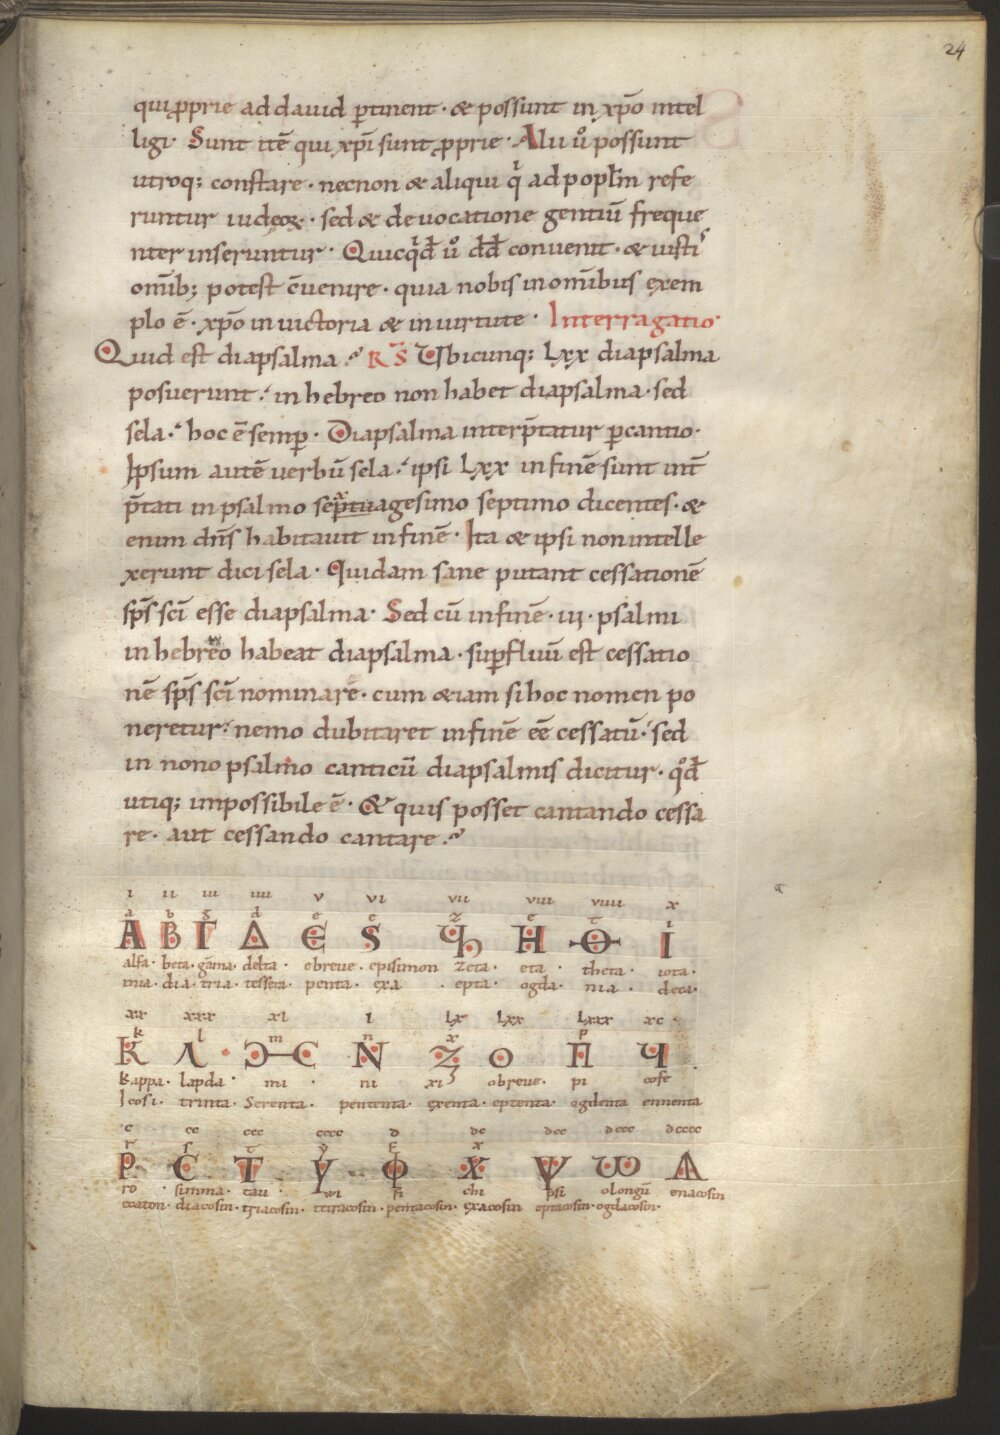 24
qui ꝓprie ad dauid ꝑtinent · & possunt in xp̄o intel
ligi · Sunt itē qui xp̄i sunt ꝓprie · Alii ů possunt
utroq; constare · necnon & aliqui q̍ ad popl̄m refe
runtur iudeoꝝ · sed & de uocatione gentiū freque
nter inseruntur · Quicq̍d̄ ů dd̄ conuenit · & iusti
om̄ib; potest c̄uenire · quia nobis in om̄ibus exem
plo ē · xp̄o in uictoria & in uirtute · Interragatio ·
Quid est diapsalma ? R̄S̄ Ubicunq; Lxx diapsalma
posuerunt : in hebreo non habet diapsalma · sed
sela · hoc ē semꝑ · Diapsalma interp̄tatur ꝑcantio ·
Ipsum autē uerbū sela : ipsi Lxx in finē sunt int̄
p̄tati in psalmo septuagesimo septimo dicentes · &
enim dn̄s habitauit in finē · Ita & ipsi non intelle
xerunt dici sela · Quidam sane putant cessationē
sp̄s sc̄i esse diapsalma · Sed cū in finē · iii · psalmi
in hebreo habeat diapsalma · suꝑfluū est cessatio
nē sp̄s sc̄i nominare · cum &iam si hoc nomen po
neretur : nemo dubitaret in finē eē cessatū · sed
in nono psalmo canticū diapsalmis dicitur · qd̊
utiq; impossibile ē · & quis posset cantando cessa
re · aut cessando cantare ?
i ii iii iiii v vi vii viii viiii x
a b g d e e z e t i
Α Β Γ Δ Ε S Ϥ Η Θ Ι
alfa · beta · gāma · delta · ebreue · episimon zeta · eta · theta · iota ·
mia · dia · tria · tessera · penta · exa · epta · ogda · nia · deca ·
xx xxx xl l Lx Lxx Lxxx xc ·
k l m n x p
Κ Λ Ϻ Ν Ζ Ο Π Ϥ
kappa · lapda · mi · ni xi obreue · pi cofe
Icosi · trinta · Serenta · pententa · exenta · eptenta · ogdenta ennenta
c cc ccc cccc d dc dcc dccc dcccc
r s t y f x
Ρ Ϲ Τ Υ Φ Χ Ψ ω Ϡ
ro · simma · tau · wi fi chi psi olongū enacosin
ecaton · diacosin · triacosin · tetracosin · pentacosin · exacosin eptacosin · ogdacosin ·